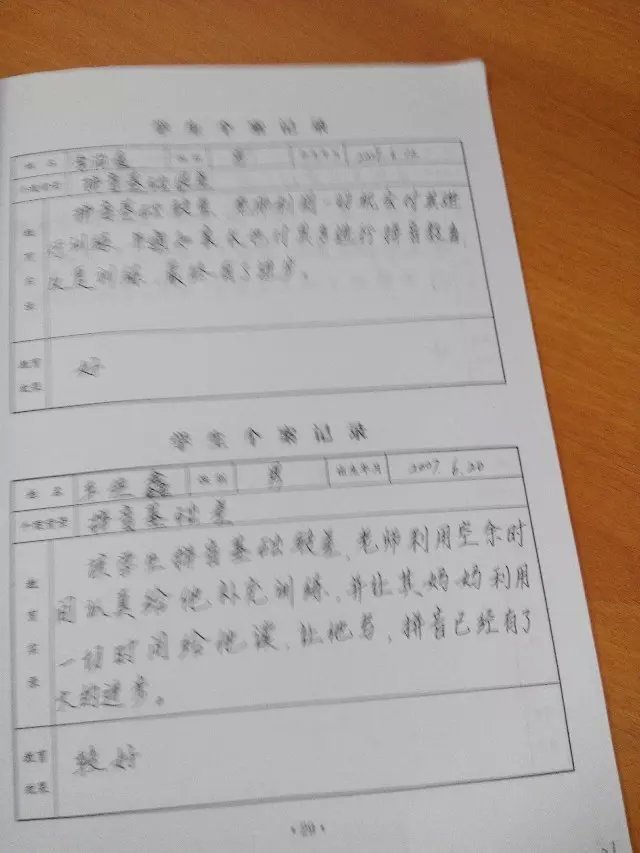 学生个案记录
姓名 性别 男 出生年月 2007.6.
个案类型 拼音基础较差
拼音基础较差,老师利用一切机会对其进
行训练,并要求家长也对其多进行拼音教育,
反复训练,最终有了进步。
教育
效果 好
学生个案记录
姓名 鑫 性别 男 出生年月 2007.6.20
个案类型 拼音基础差
该学生拼音基础较差,老师利用空余时
间认真给他补充训练,并让其妈妈利用
一切时间给他读,让他写,拼音已经有了
大的进步。
教育
效果 较好
·20·